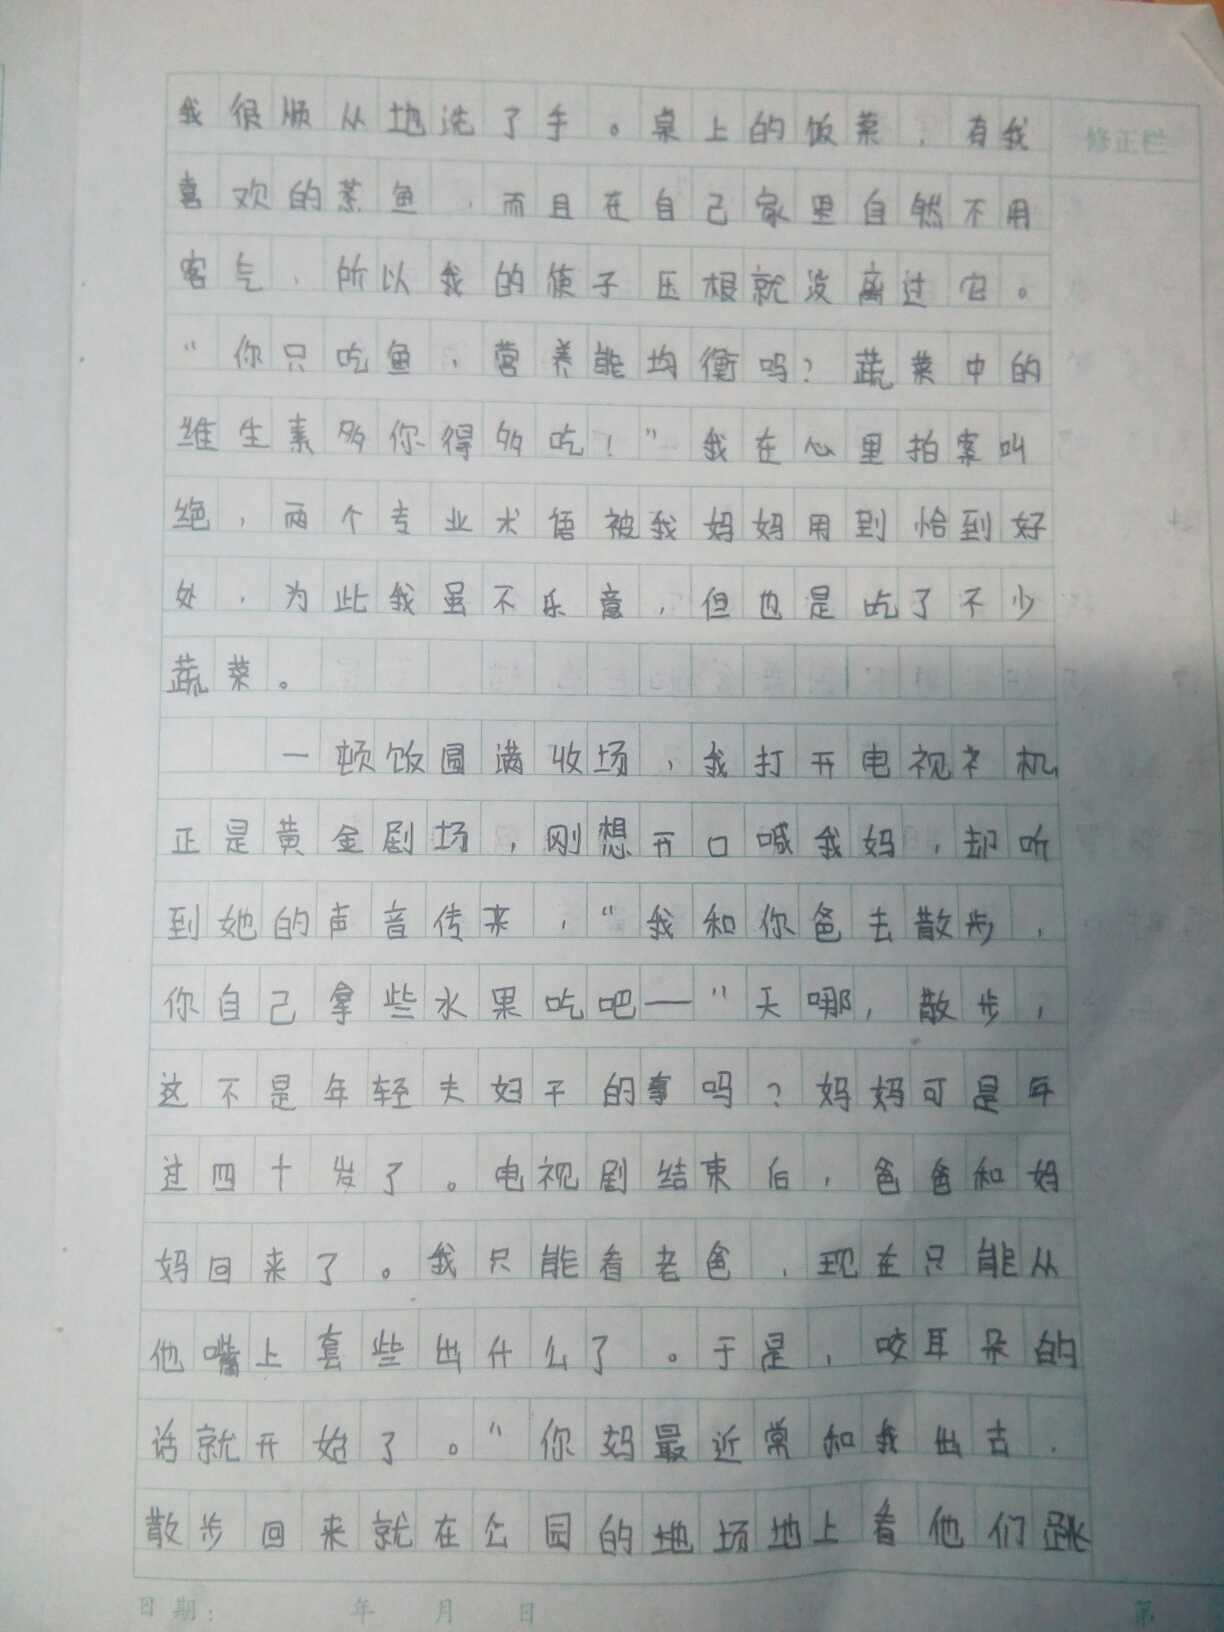 我很顺从地洗了手。桌上的饭菜，有我
修正栏
喜欢的蒸鱼，而且在自己家里自然不用
客气，所以我的筷子压根就没离过它。
“你只吃鱼，营养能均衡吗？蔬菜中的
维生素多你得多吃！”我在心里拍案叫
绝，两个专业术语被我妈妈用到恰到好
处，为此我虽不乐意，但也是吃了不少
蔬菜。
一顿饭圆满收场，我打开电视机
正是黄金剧场，刚想开口喊我妈，却听
到她的声音传来，“我和你爸去散步，
你自己拿些水果吃吧——”天哪，散步，
这不是年轻夫妇干的事吗？妈妈可是年
过四十岁了。电视剧结束后，爸爸和妈
妈回来了。我只能看老爸，现在只能从
他嘴上套些出什么了。于是，咬耳朵的
话就开始了。“你妈最近常和我出去，
散步回来就在公园的地场地上看他们跳
日期： 年 月 日
第